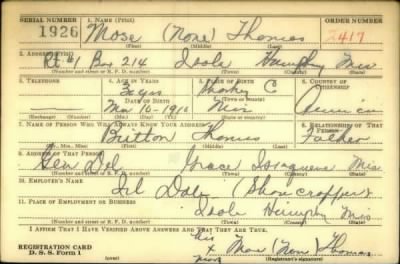 SERIAL NUMBER 1. NAME (Print) ORDER NUMBER
1926 Mose (None) Thomas 2417
(First) (Middle) (Last)
2. ADDRESS (Print)
Rt #1 Box 214 Isola Humphy Mis
(Number and street or R. F. D. number) (Town) (County) (State)
3. TELEPHONE 4. AGE IN YEARS 5. PLACE OF BIRTH 6. COUNTRY OF CITIZENSHIP
DATE OF BIRTH
Mis
(Exchange) (Number) (Mo.) (Day) (Yr.) (State or country)
7. NAME OF PERSON WHO WILL ALWAYS KNOW YOUR ADDRESS 8. RELATIONSHIP OF THAT PERSON
Britton Thomas Father
(Mr., Mrs., Miss) (First) (Middle) (Last)
9. ADDRESS OF THAT PERSON
Glen Del Grace Issaquena Mis
(Number and street or R. F. D. number) (Town) (County) (State)
10. EMPLOYER'S NAME
(Sharecropper)
11. PLACE OF EMPLOYMENT OR BUSINESS
Isola Humphy Mis
(Number and street or R. F. D. number) (Town) (County) (State)
I AFFIRM THAT I HAVE VERIFIED ABOVE ANSWERS AND THAT THEY ARE TRUE.
REGISTRATION CARD
D. S. S. Form 1
his
x Mose (None) Thomas
mark
(Registrant's signature)